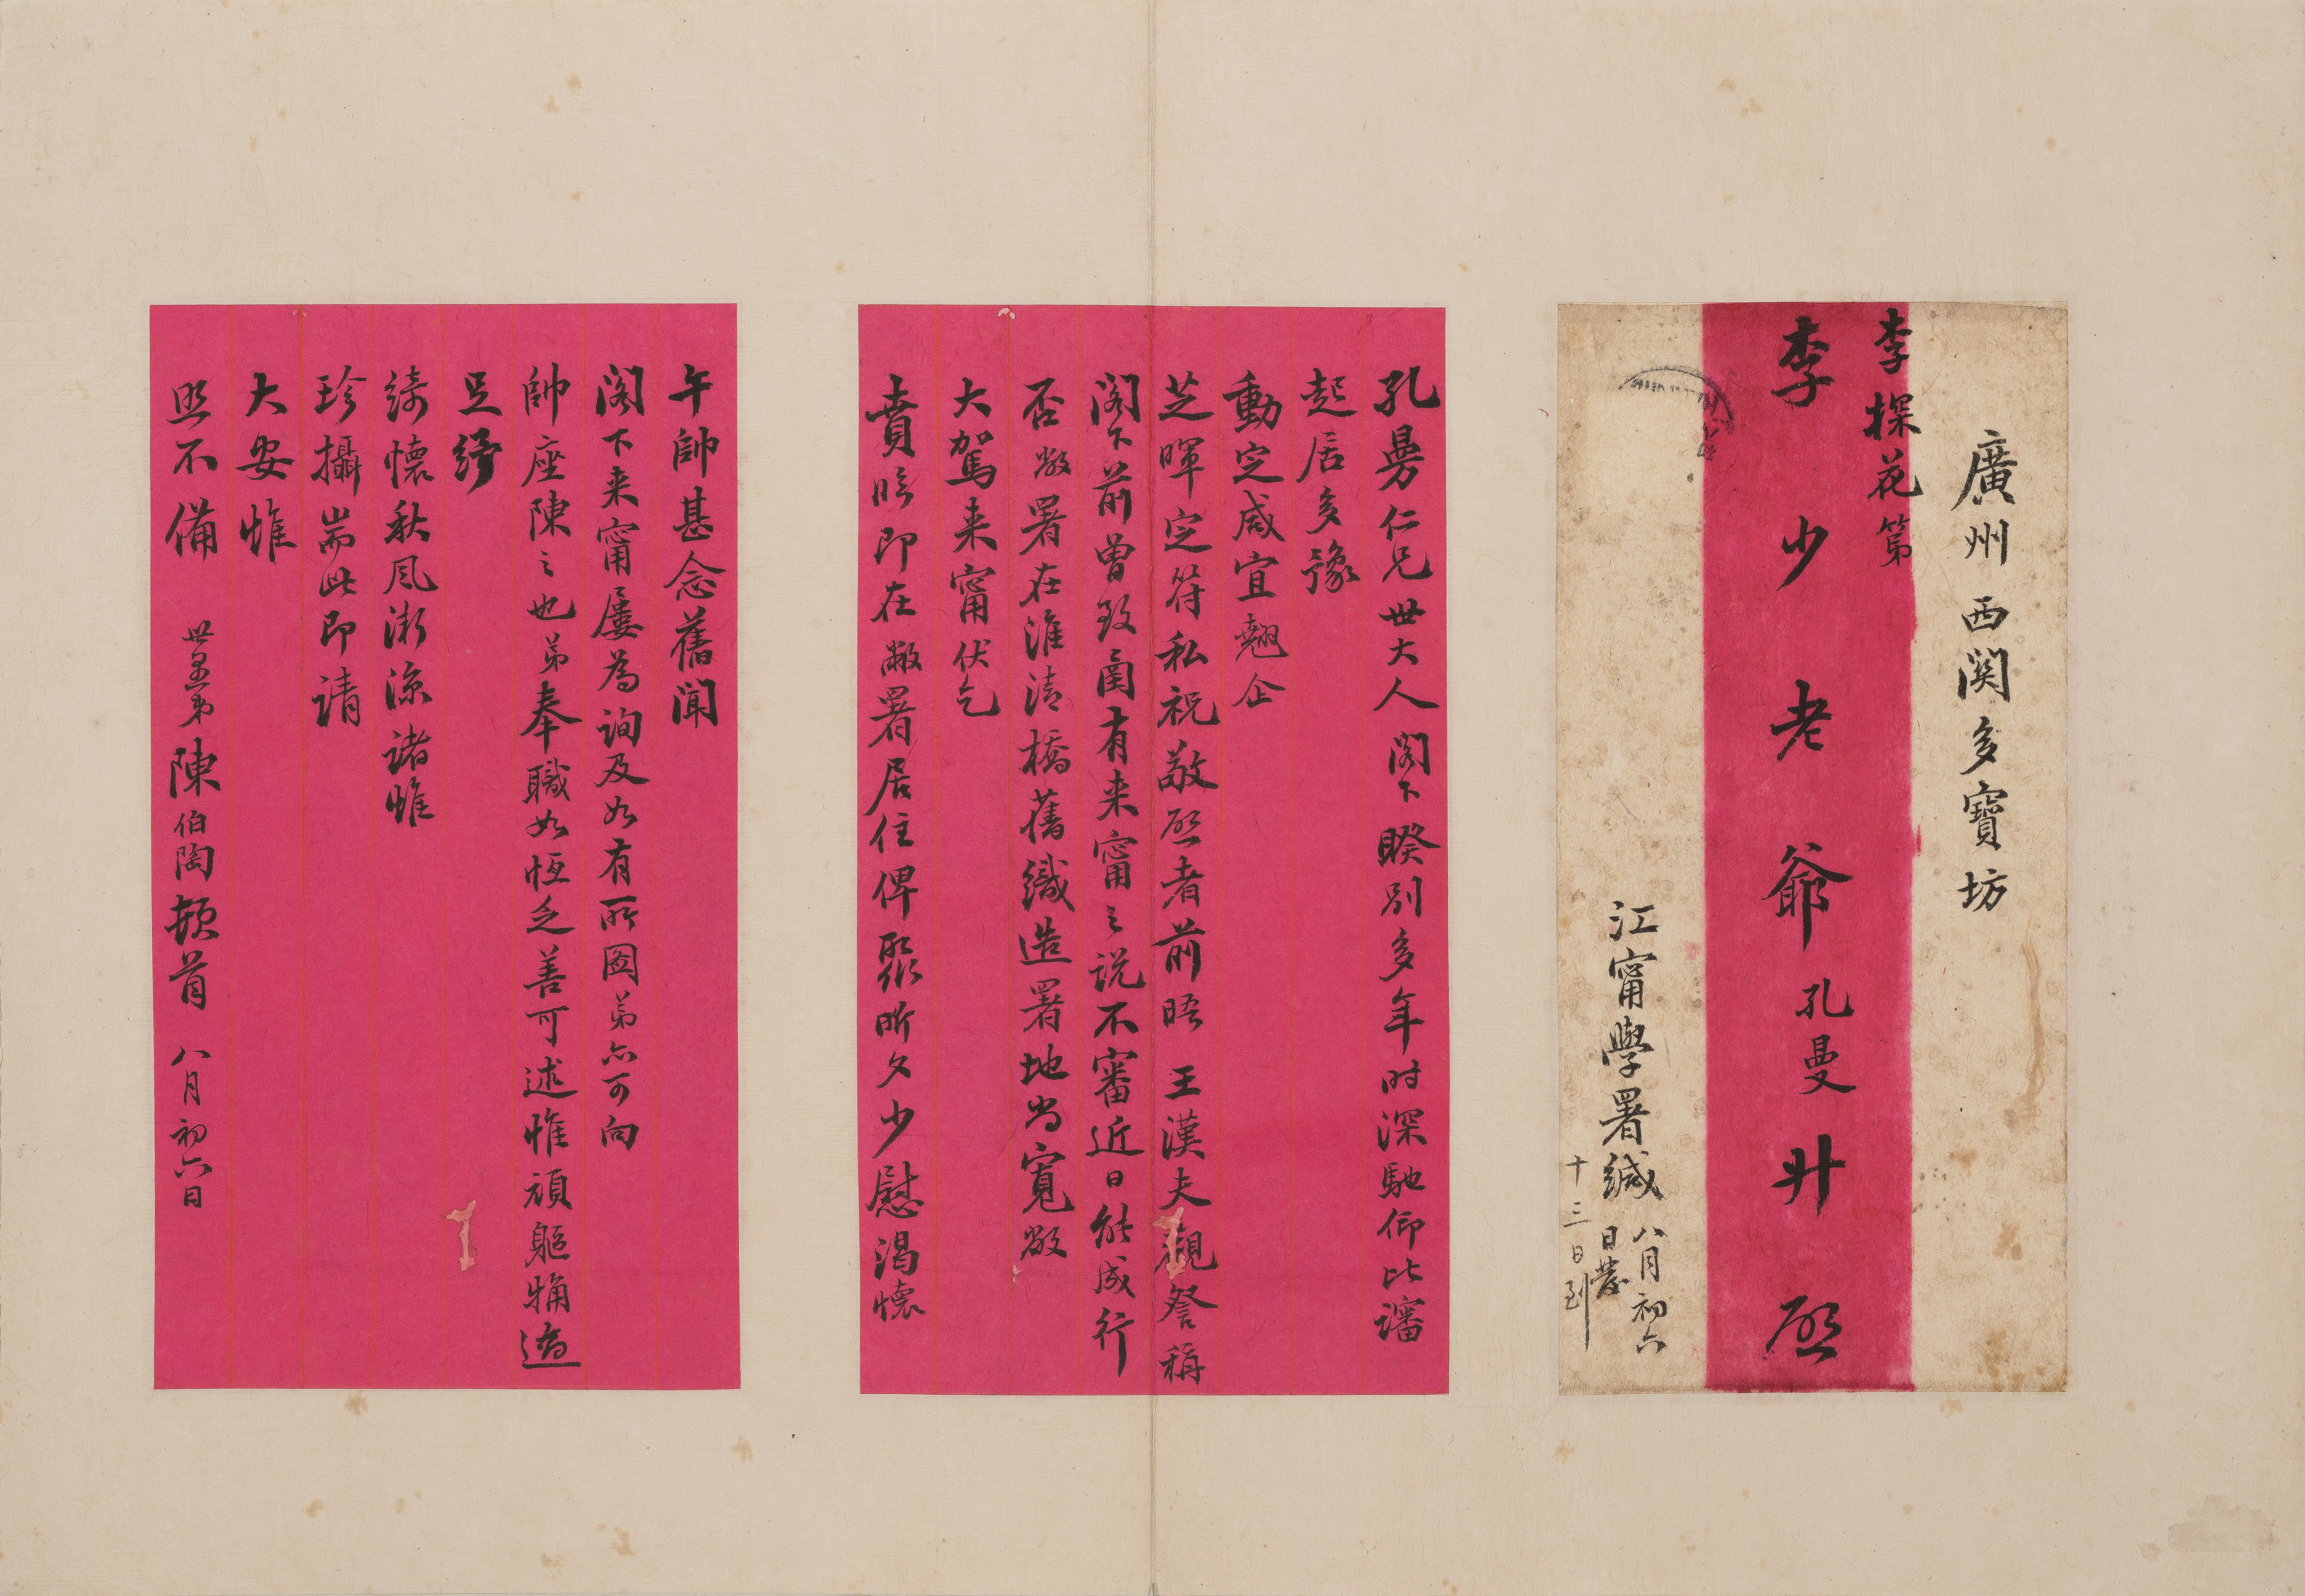 廣州西関多寶坊
李探花第
李少老爺孔曼升啟
江甯學署緘
八月初六
日發
十三日到
孔曼仁兄世大人閣下睽別多年时深馳仰比讅
起居多豫
動定咸宜翹企
芝暉定符私祝敬啟者前晤王漢夫觀詧稱
閣下前曾致圅有来甯之說不審近日能成行
否敝署在淮清橋舊織造署地尚寬敞
大駕来甯伏乞
賁臨即在敝署居住俾聚昕夕少慰渴懷
午帥甚念舊聞
閣下来甯屢為詢及如有所圖弟亦可向
帥座陳之也弟奉職如恆乏善可述惟頑軀粗適
足紓
綺懷秋風漸涼諸惟
珍攝耑此即請
大安惟
照不備
世愚弟陳伯陶頓首 八月初六日